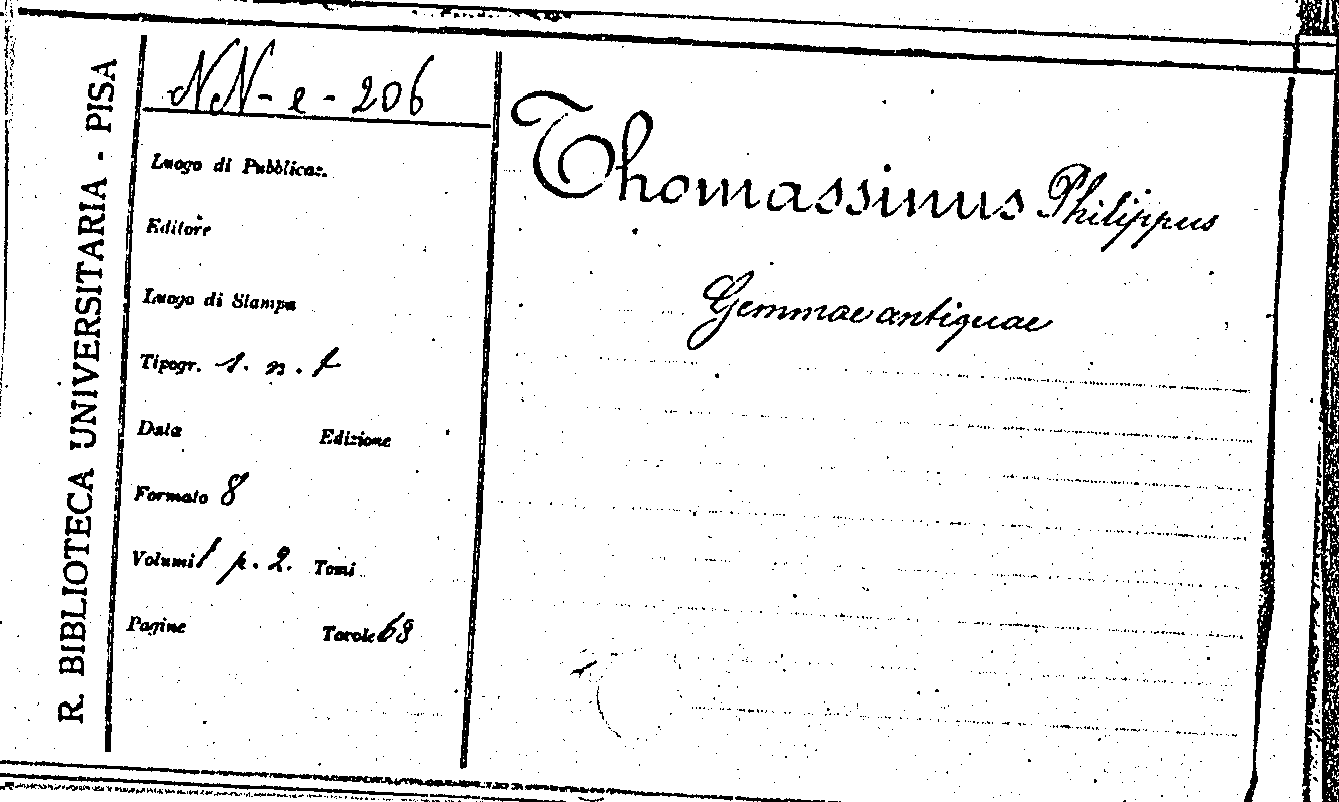 R. BIBLIOTECA UNIVERSITARIA - PISA
NN - e - 206
Luogo di Pubblicaz.
Editore
Luogo di Stampa
Tipogr. s. n. t
Data Edizione
Formato 8
Volumi 1 p. 2. Tomi
Pagine Tavole 68
Thomassinus Philippus
Gemmae antiquae